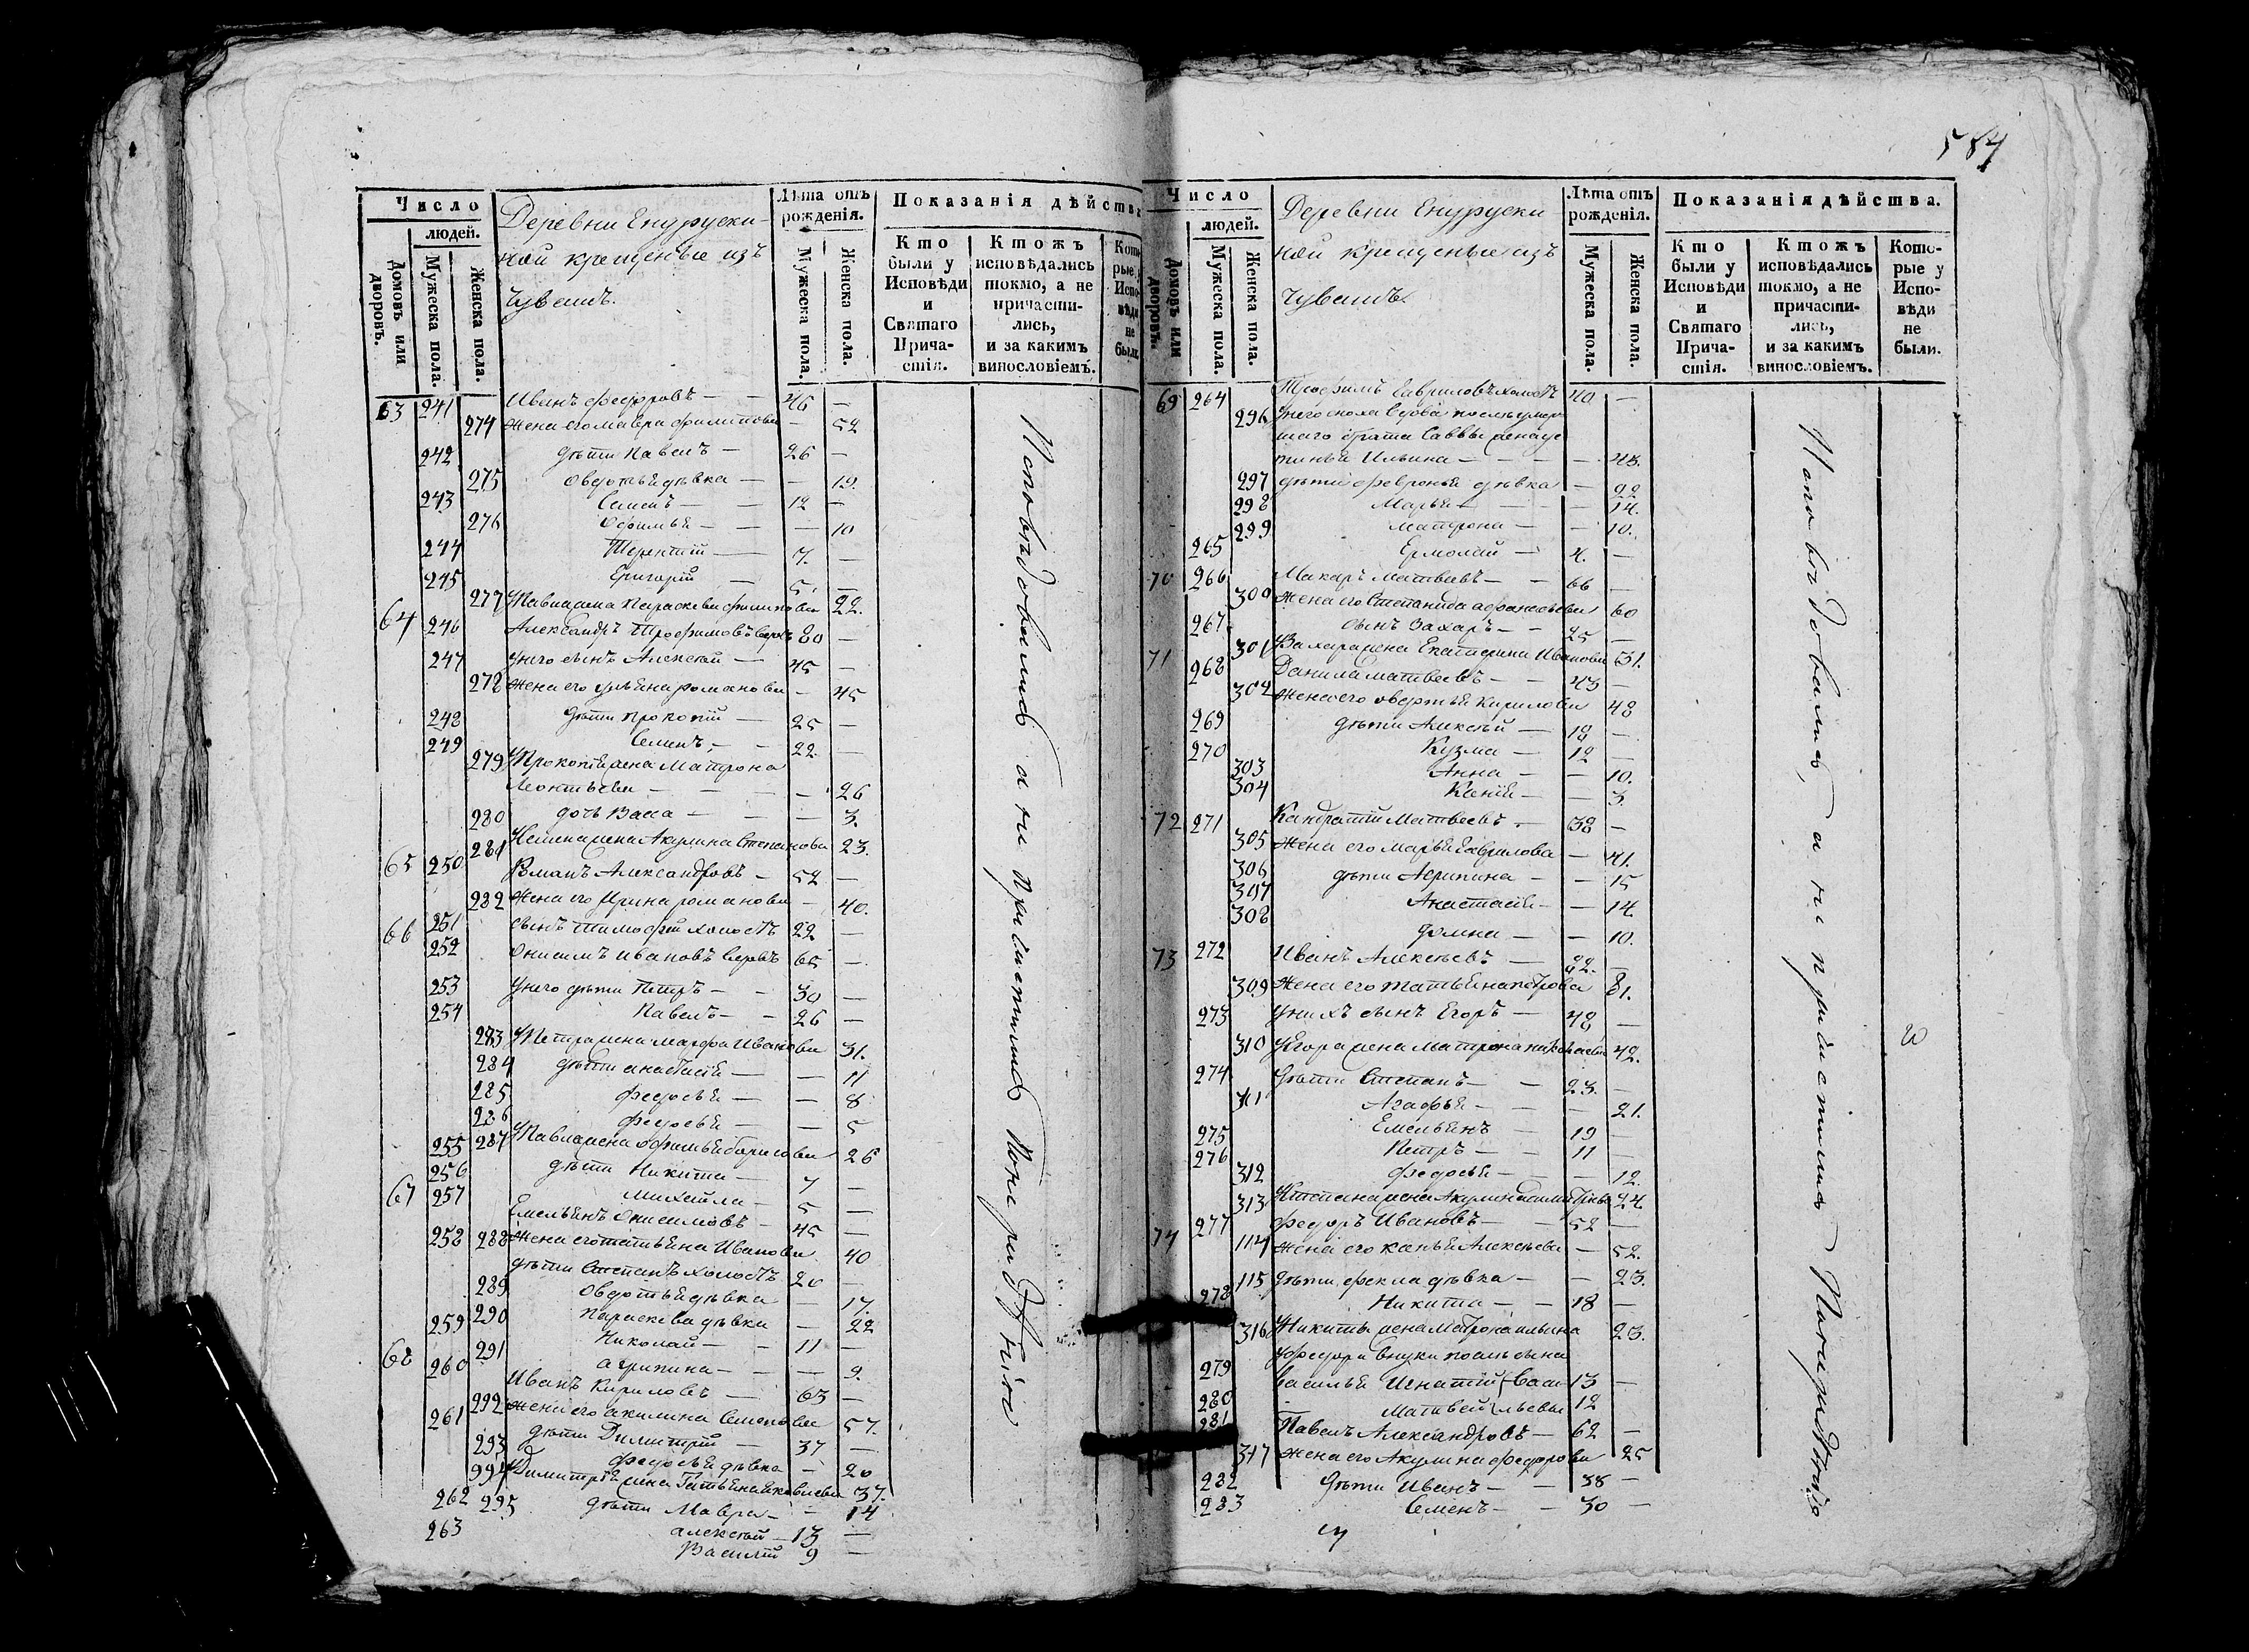 584
Число
людей.
Домовъ или дворовъ.
Мужеска пола.
Женска пола.
Деревни Ендруски-
ной крещеные изъ
чувашъ.
Лѣта отъ рожденія.
Мужеска пола.
Женска пола.
Показанія дѣйства
Кто были у Исповѣди и Святаго Причастія.
Ктожъ исповѣдались токмо, а не причастились, и за какимъ винословіемъ.
Которые у Исповѣди не были.
63 241 Иванъ Федоровъ — 46 —
274 Жена его Мавра Филипова — 52
242 дѣти Павелъ — 26 —
275 Овдотья дѣвка — — 19.
243 Семенъ — — 12 —
276 Офимья — — — 10
244 Терентій — 7. —
245 Григорій — 5. —
277 У Павла жена Параскева Филипова 22.
64 246 Александръ Трофимовъ вдовъ 80 —
247 У него сынъ Алексей — 45 —
278 Жена его Ульяна Романова — 45
248 дѣти Прокопій — 25 —
249 Семенъ — — 22 —
279 У Прокопія жена Матрона
Леонтьева — — — — 26
280 дочь Васса — — — 3.
281 У Семена жена Акулина Степанова 23.
65 250 Романъ Александровъ — 52 —
282 Жена его Ирина Романова — 40.
66 251 сынъ Тимофей холостъ 22 —
252 Онисимъ Ивановъ вдовъ 65 —
253 У него дѣти Петръ — — 30 —
254 Павелъ — — 26 —
283 У Петра жена Марфа Иванова 31.
284 дѣти Анастасія — — 11
285 Федосья — — 8
286 Федосья — — 5
255 287 У Павла жена Офимья Борисова 26
256 дѣти Никита — 7 —
67 257 Михайла — 5 —
Емельянъ Онисимовъ — 45 —
258 288 Жена его Татьяна Иванова 40
дѣти Степанъ холостъ 20 —
289 Овдотья дѣвка — 17.
259 290 Параскева дѣвка — 22
291 Николай — — 11 —
68 260 Агрипина — — — 9.
Иванъ Кириловъ — 63 —
261 292 Жена его Акилина Семенова 57.
дѣти Димитрій — 37 —
293 Федосья дѣвка — 20
294 У Димитрія жена Татьяна Яковлева 37.
262 295 дѣти Мавра — — 14
263 Алексей — 13 —
Василій 9 —
Исповѣдовались а не причастились По нерадѣнію
Число
людей.
Домовъ или дворовъ.
Мужеска пола.
Женска пола.
Деревни Ендруски
ной крещеные изъ
чувашъ.
Лѣта отъ рожденія.
Мужеска пола.
Женска пола.
Показанія дѣйства.
Кто были у Исповѣди и Святаго Причастія.
Ктожъ исповѣдались токмо, а не причастились, и за какимъ винословіемъ.
Которые у Исповѣди не были.
69 264 Трофимъ Гавриловъ холостъ 40 —
296 У него сноха вдова после умер-
шаго брата Саввы жена
Ильина — — — — 43.
297 дѣти Февронья дѣвка — 22
298 Марья — — — 14.
299 Матрона — — 10.
265 Ермолай — 4. —
70 266 Макаръ Матвеевъ — — 66 —
300 Жена его Степанида Афанасьева 60
267 сынъ Захаръ — — 25 —
71 301 У Захара жена Екатерина Иванова 31.
268 Данила Матвеевъ — — 43 —
302 Жена его Овдотья Кирилова 48
269 дѣти Алексей — 18 —
270 Кузма — 12 —
303 Анна — — 10.
304 Ксенія — — 3.
72 271 Кандратій Матвеевъ — 38 —
305 Жена его Марья Гаврилова — 41.
306 дѣти Агрипина — — 15
307 Анастасія — — 14.
308 Домна — — 10.
73 272 Иванъ Алексеевъ — 82. —
309 Жена его Татьяна Петрова 81.
273 У нихъ сынъ Егоръ — 48 —
310 У Егора жена Матрона Николаева 42.
274 дѣти Степанъ — — 23. —
311 Агафья — — — 21.
275 Емельянъ — 19 —
276 Петръ — — 11 —
312 Федосья — — 12.
313 У Степана жена Акулина 24
74 277 Федоръ Ивановъ — — 52 —
114 Жена его Ксенья Алексеева — 52.
115 дѣти Фекла дѣвка — — 23.
278 Никита — — 18 —
316 У Никиты жена Матрона Ильина 23.
У Федора внуки после сына
279 Василья Игнатій (Васи- 13 —
280 Матвей (льевы 12
281 Павелъ Александровъ — 62 —
317 Жена его Акулина Федорова 25
282 дѣти Иванъ — — 38 —
283 Семенъ — — 30 —
Исповѣдовались, а не причастились По нерадѣнію